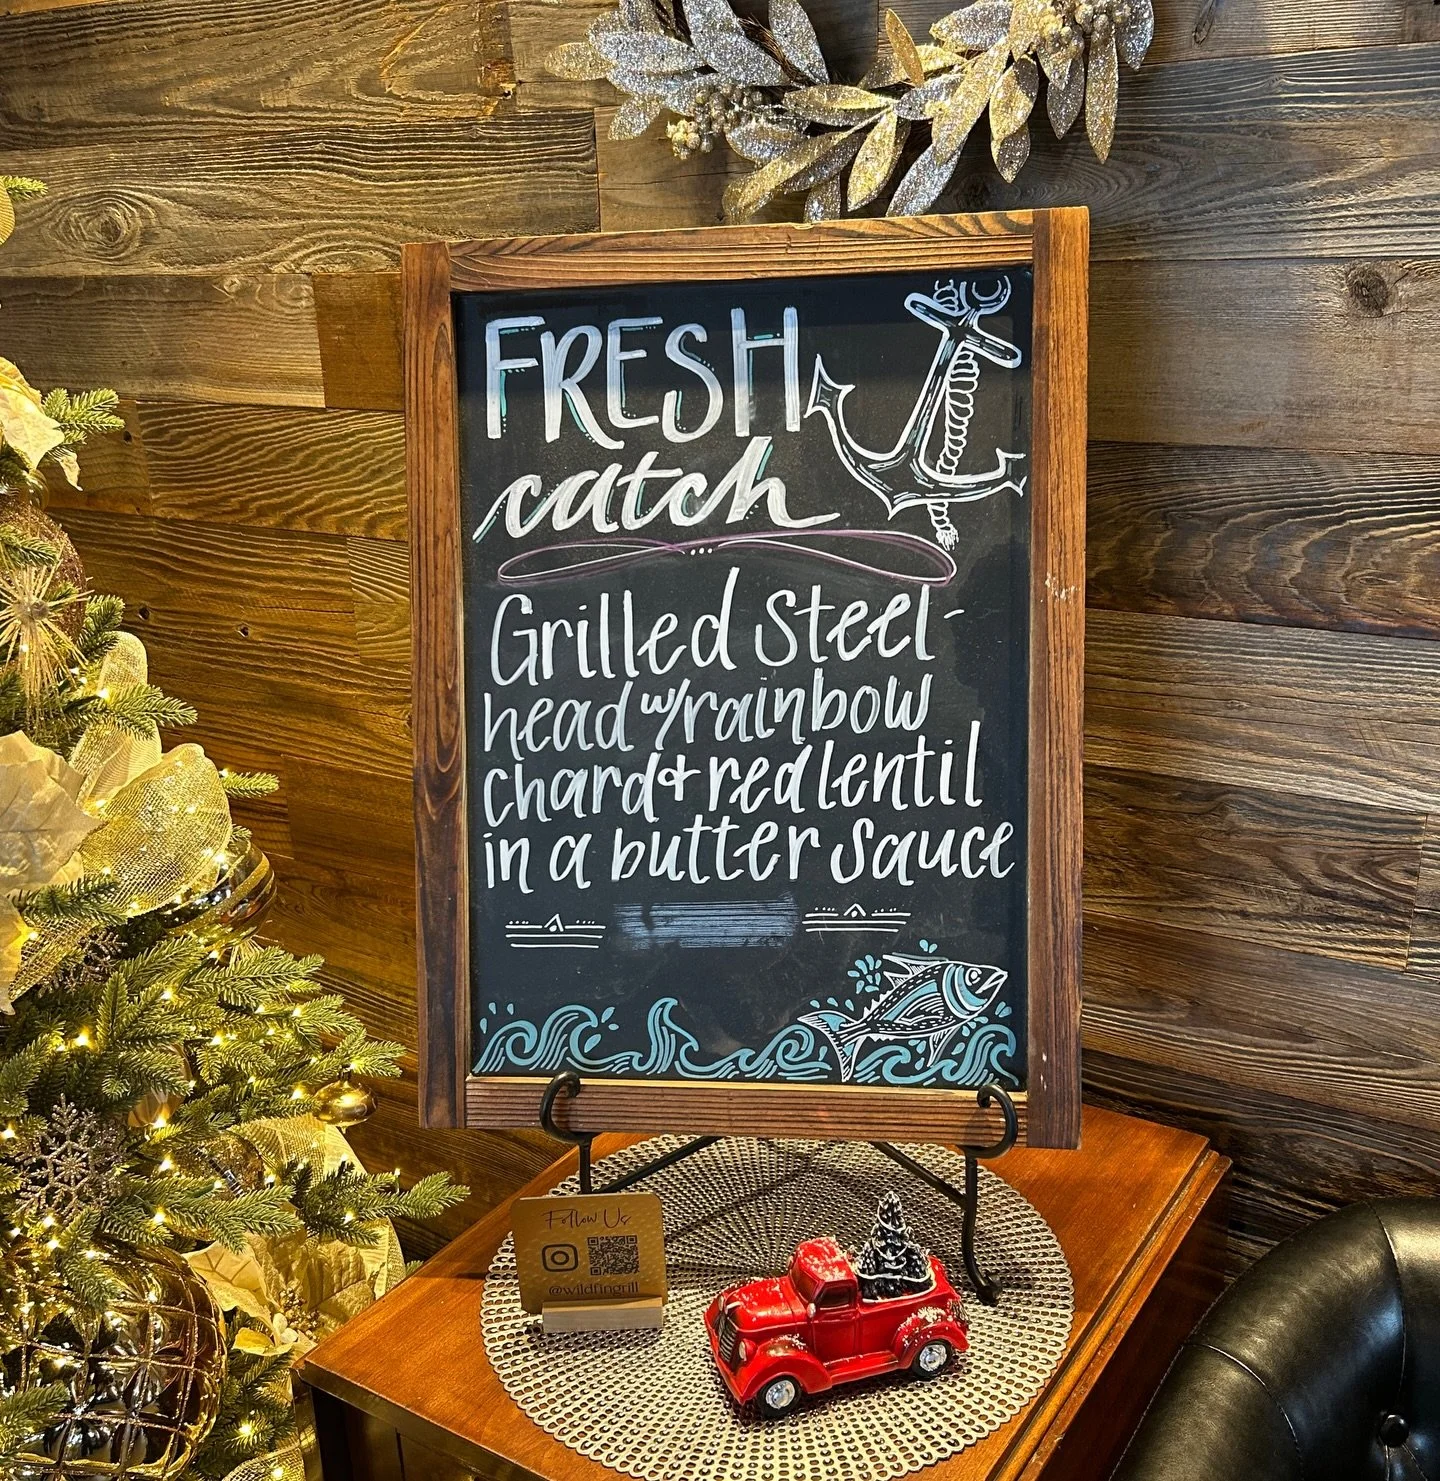 FRESH
catch
Grilled Steel-
head w/rainbow
chard & red lentil
in a butter sauce
Follow Us
@wildfingrill